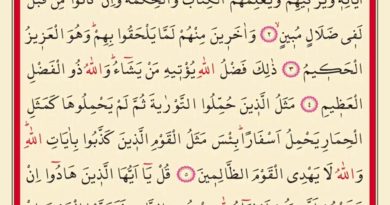 اٰيَاتِه۪ وَيُزَكّ۪يهِمْ وَيُعَلِّمُهُمُ الْكِتَابَ وَالْحِكْمَةَ وَاِنْ كَانُوا مِنْ قَبْلُ
لَف۪ي ضَلَالٍ مُب۪ينٍۙ ﴿٢﴾ وَاٰخَر۪ينَ مِنْهُمْ لَمَّا يَلْحَقُوا بِهِمْۜ وَهُوَ الْعَز۪يزُ
الْحَك۪يمُ ﴿٣﴾ ذٰلِكَ فَضْلُ اللّٰهِ يُؤْت۪يهِ مَنْ يَشَٓاءُۜ وَاللّٰهُ ذُو الْفَضْلِ
الْعَظ۪يمِ ﴿٤﴾ مَثَلُ الَّذ۪ينَ حُمِّلُوا التَّوْرٰيةَ ثُمَّ لَمْ يَحْمِلُوهَا كَمَثَلِ
الْحِمَارِ يَحْمِلُ اَسْفَارًاۜ بِئْسَ مَثَلُ الْقَوْمِ الَّذ۪ينَ كَذَّبُوا بِاٰيَاتِ اللّٰهِۜ
وَاللّٰهُ لَا يَهْدِي الْقَوْمَ الظَّالِم۪ينَ ﴿٥﴾ قُلْ يَٓا اَيُّهَا الَّذ۪ينَ هَادُٓوا اِنْ